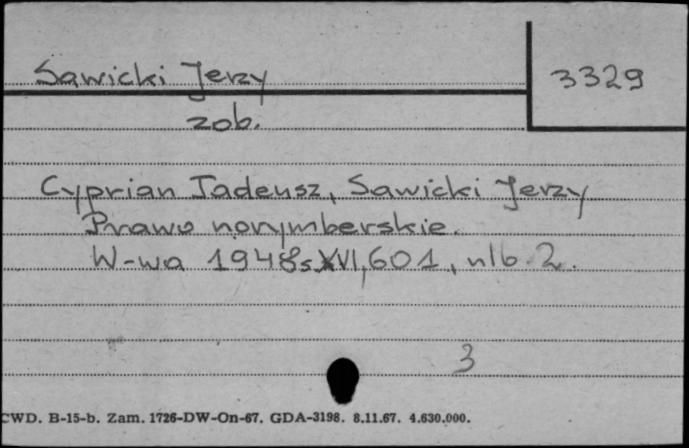 Sawicki Jerzy
3329
zob.
Cyprian Tadeusz, Sawicki Jerzy
Prawo norymberskie.
W-wa 1948 s. XVI, 601, nlb. 2.
3
CWD. B-15-b. Zam. 1726-DW-On-67. GDA-3198. 8.11.67. 4.630.000.